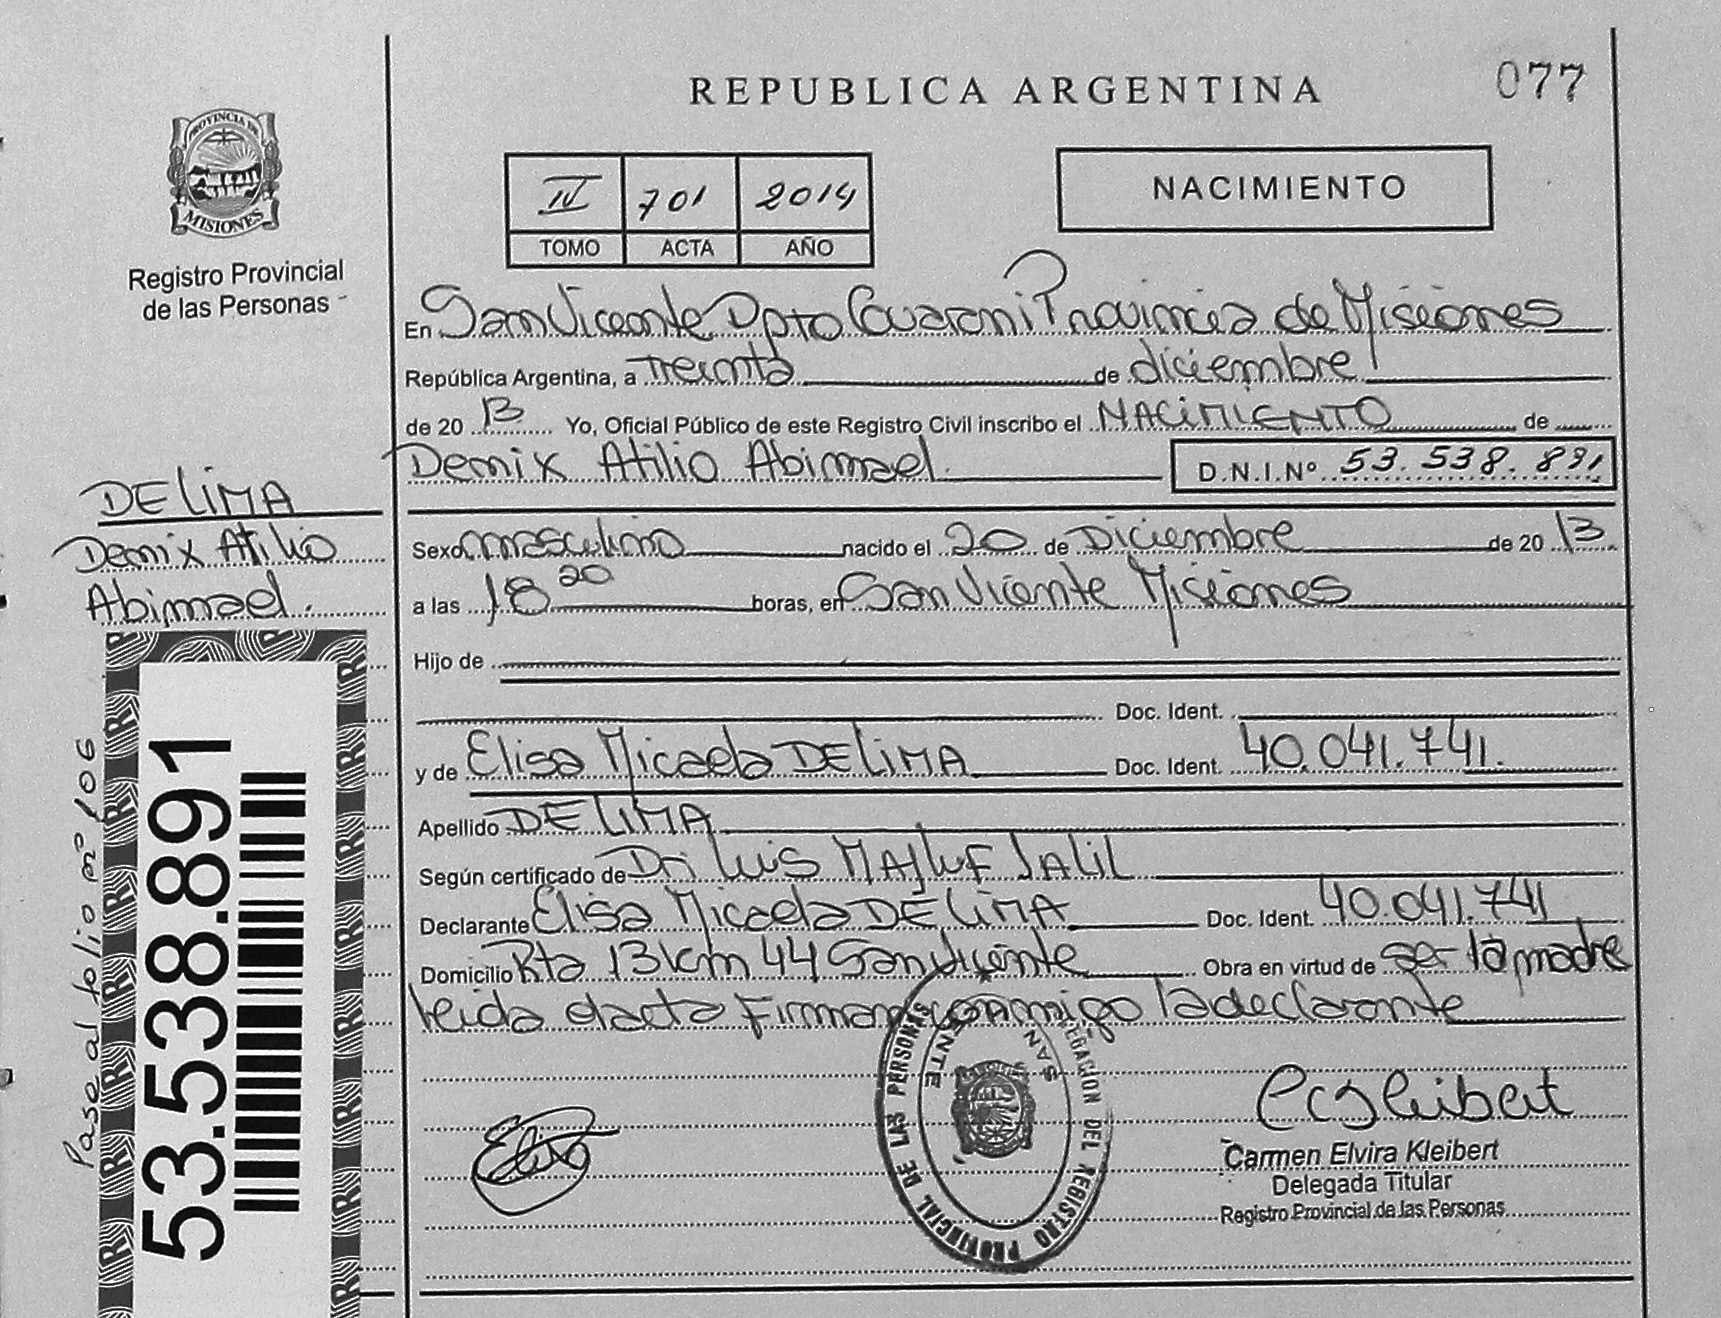 REPUBLICA ARGENTINA
077
PROVINCIA DE
MISIONES
Registro Provincial
de las Personas
IV 701 2014
TOMO ACTA AÑO
NACIMIENTO
En San Vicente Dpto Guarani Provincia de Misiones
República Argentina, a Treinta de diciembre
de 20 13 Yo, Oficial Público de este Registro Civil inscribo el NACIMIENTO de
Demix Atilio Abimael D.N.I.Nº 53.538.891
DE LIMA
Demix Atilio
Abimael.
Sexo masculino nacido el 20 de Diciembre de 20 13
a las 18 20 horas, en San Vicente Misiones
Hijo de
Doc. Ident.
y de Elisa Micaela DE LIMA Doc. Ident. 40.041.741.
Apellido DE LIMA
Según certificado de Dr. Luis MAJLUF JALIL
Declarante Elisa Micaela DE LIMA Doc. Ident. 40.041.741
Domicilio Rta 13 km 44 San Vicente Obra en virtud de ser la madre
leida el acta Firman conmigo la declarante
Pase al folio nº 106
53.538.891
DELEGACION DEL REGISTRO PROVINCIAL DE LAS PERSONAS
SAN VICENTE
Carmen Elvira Kleibert
Delegada Titular
Registro Provincial de las Personas